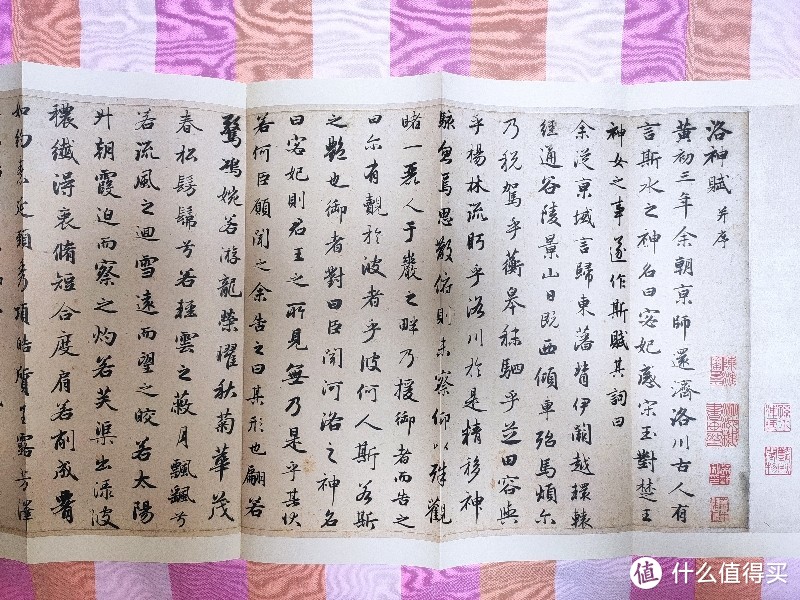 洛神賦 并序
黃初三年余朝京師還濟洛川古人有
言斯水之神名曰宓妃感宋玉對楚王
神女之事遂作斯賦其詞曰
余從京域言歸東藩背伊闕越轘轅
經通谷陵景山日既西傾車殆馬煩尓
乃稅駕乎蘅皋秣駟乎芝田容與
乎楊林流眄乎洛川於是精移神
駭忽焉思散俯則未察仰以殊觀
睹一麗人于巖之畔乃援御者而告之
曰尓有覿於彼者乎彼何人斯若斯
之艷也御者對曰臣聞河洛之神名
曰宓妃則君王之所見無乃是乎其狀
若何臣願聞之余告之曰其形也翩若
驚鴻婉若游龍榮曜秋菊華茂
春松髣髴兮若輕雲之蔽月飄颻兮
若流風之迴雪遠而望之皎若太陽
升朝霞迫而察之灼若芙蕖出淥波
穠纖得衷脩短合度肩若削成腰
如約素延頸秀項皓質呈露芳澤
值 什么值得买